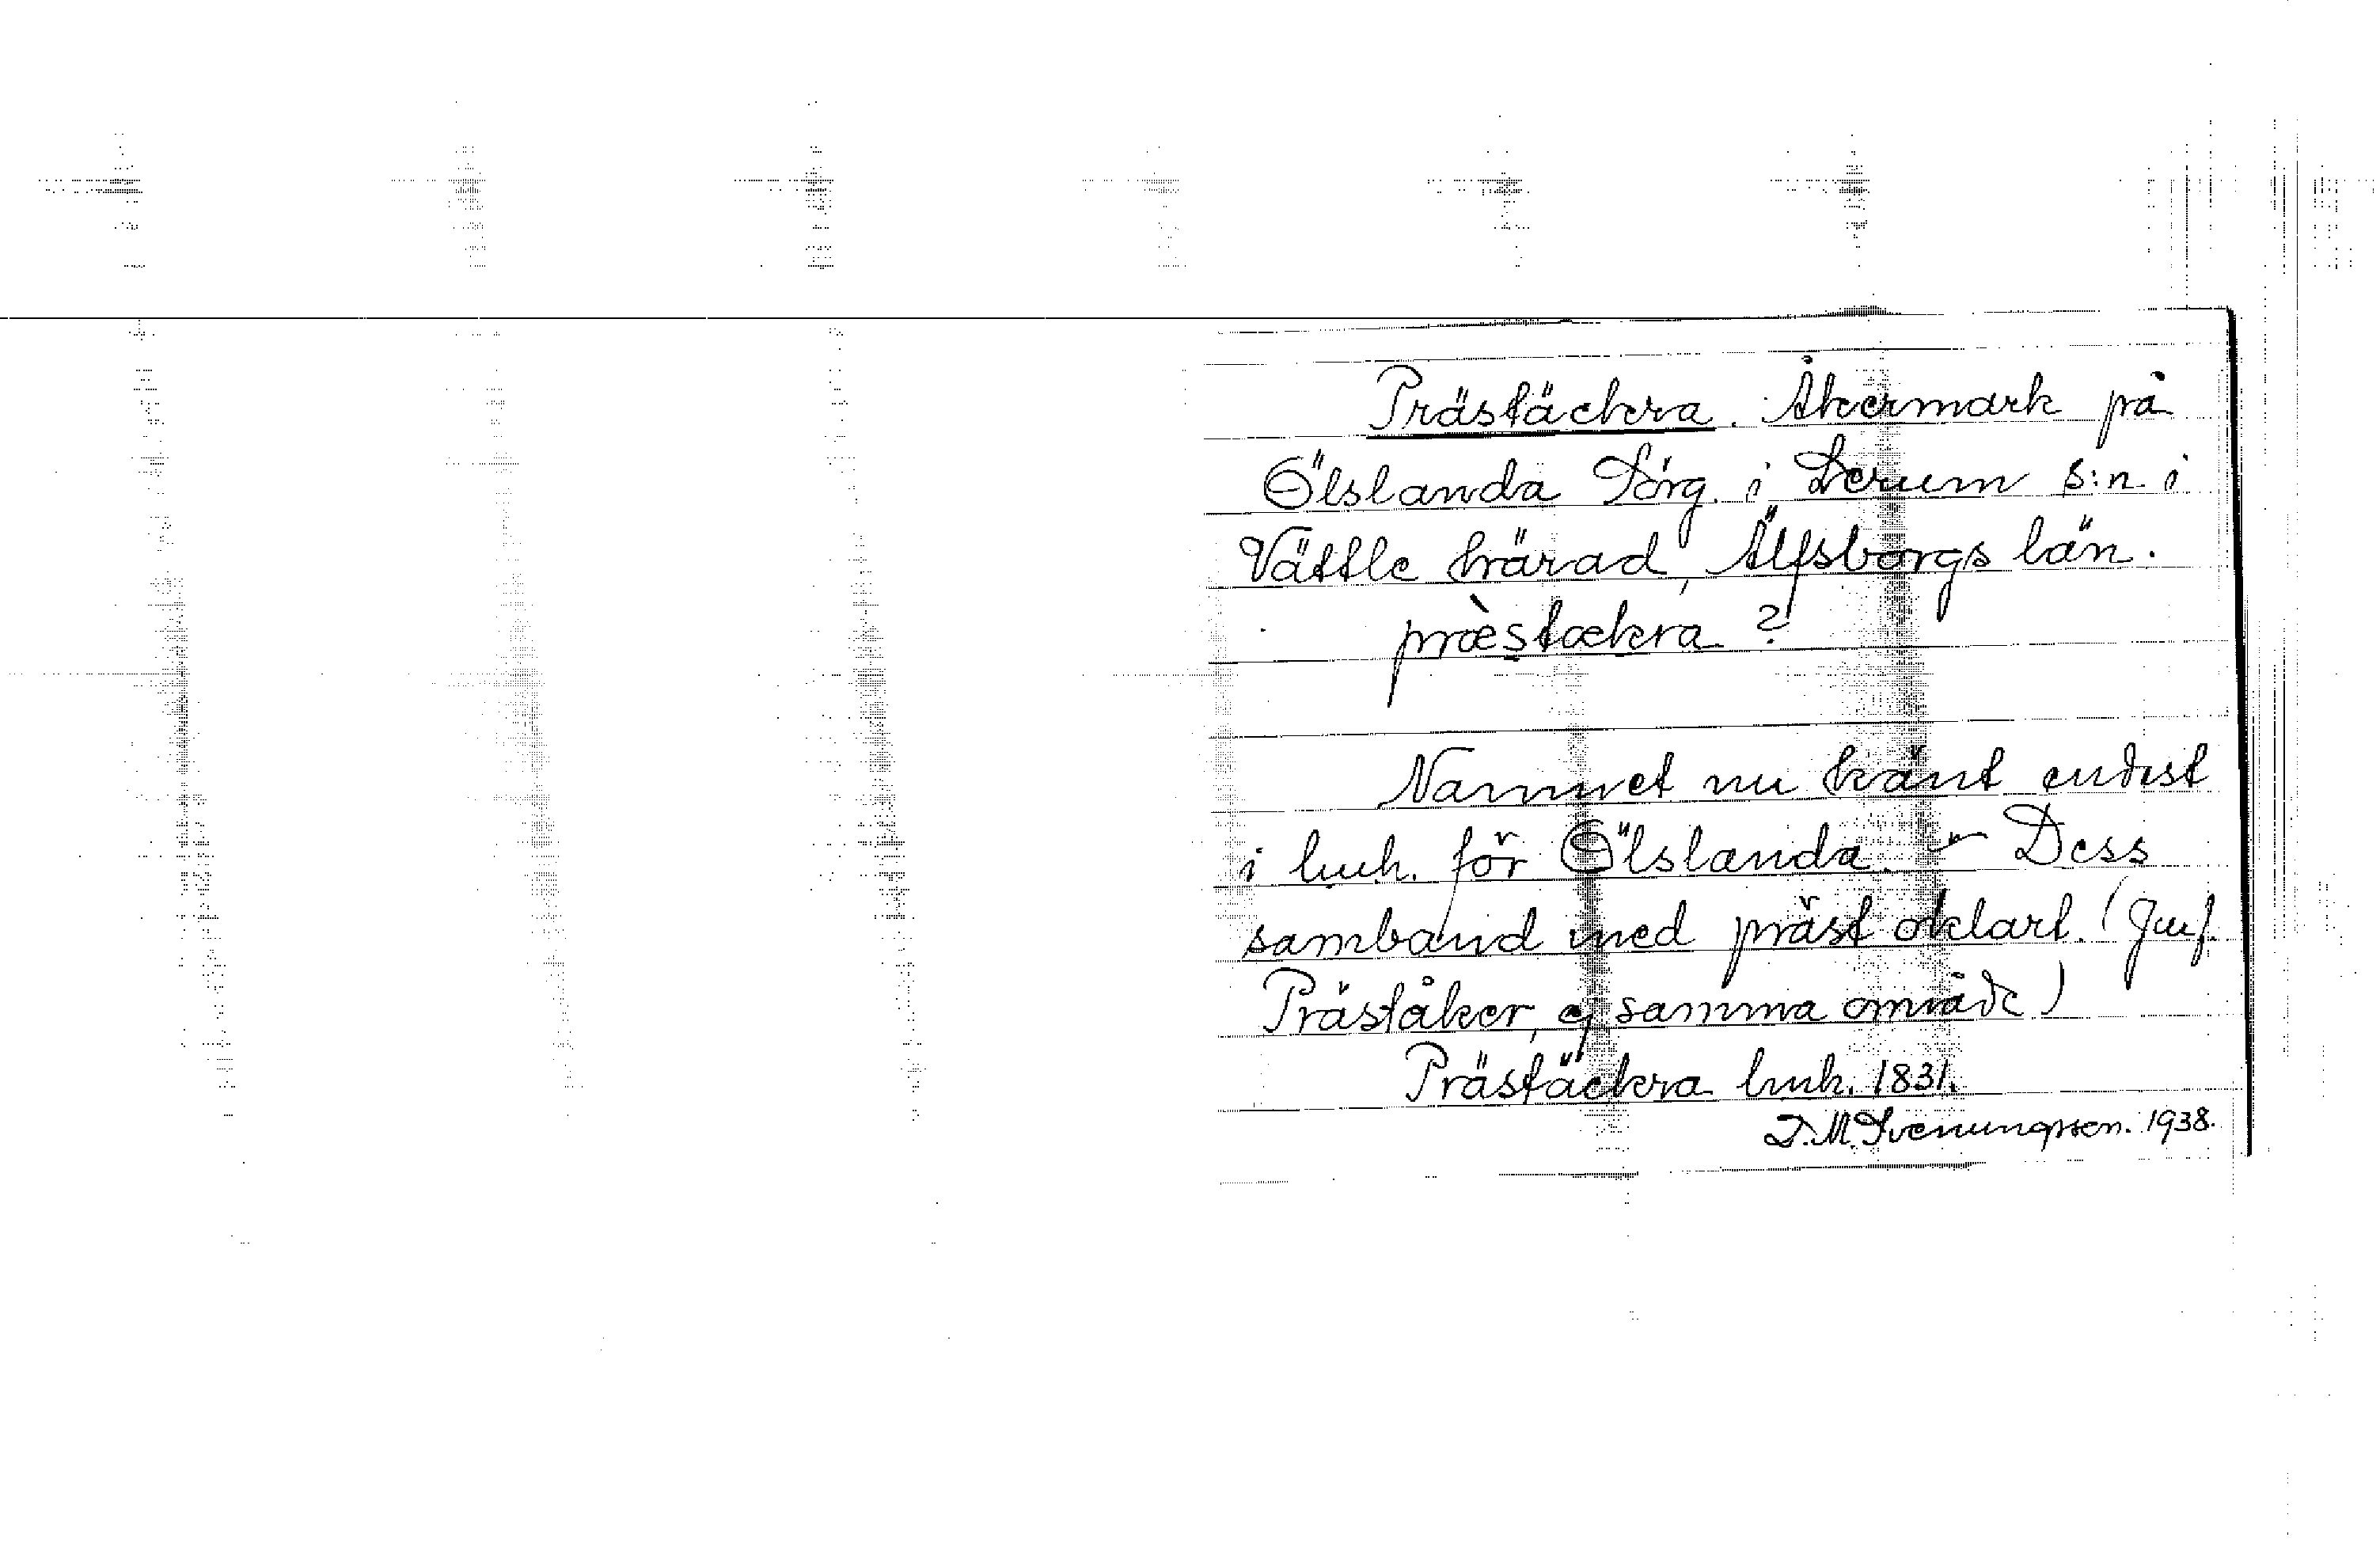 Prästäckra. Åkermark på
Ölslanda Törg. i Lerum s:n i
Vättle härad, Älfsborgs län.
prǽstækra ?
Namnet nu känt endast
i lmh. för Ölslanda. – Dess
samband med präst oklart. (Jmf.
Präståker, ej samma område)
Prästäckra lmh. 1831.
D. M. Svenungsson. 1938.